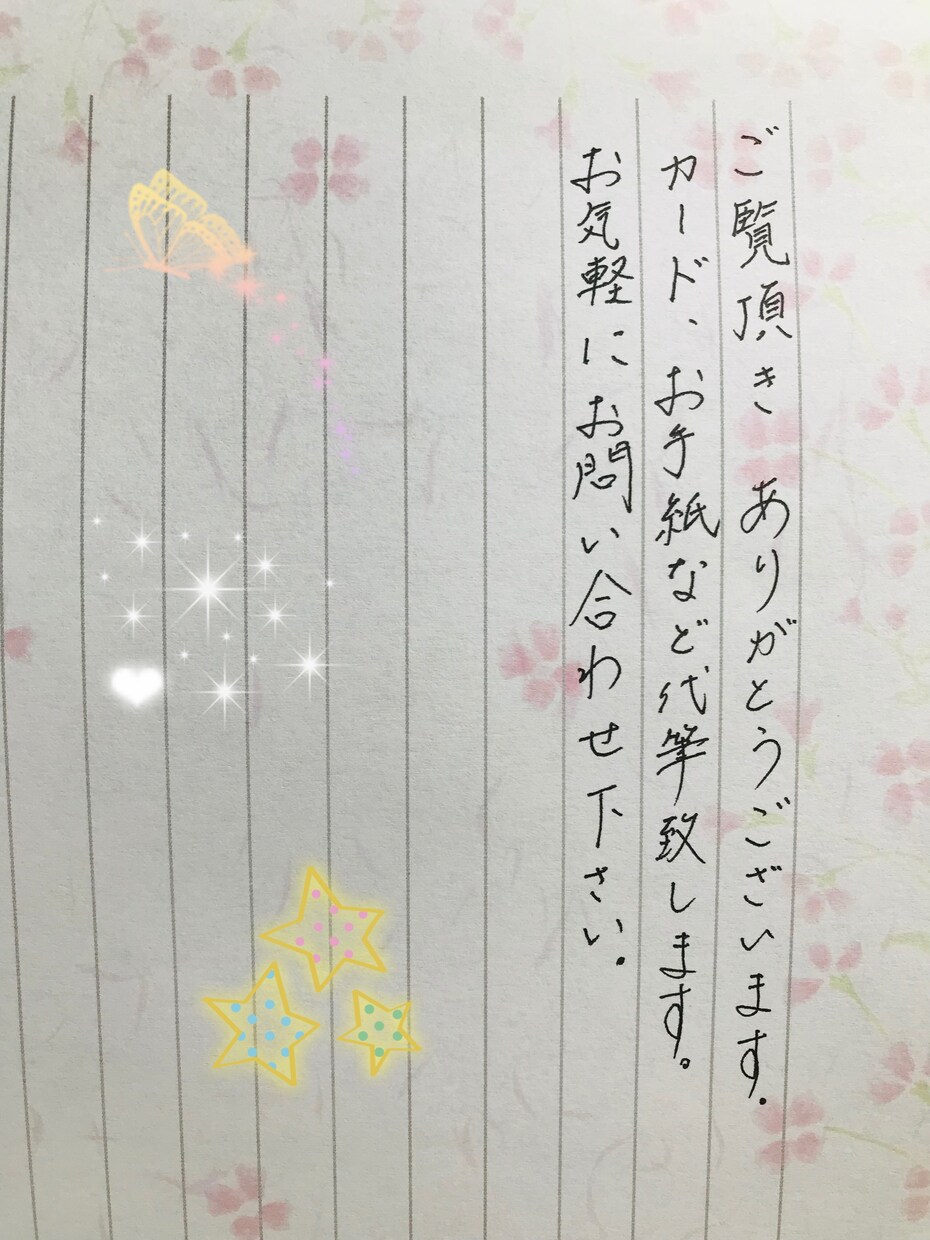 ご覧頂き ありがとうございます.
カード、お手紙など代筆致します。
お気軽にお問い合わせ下さい.